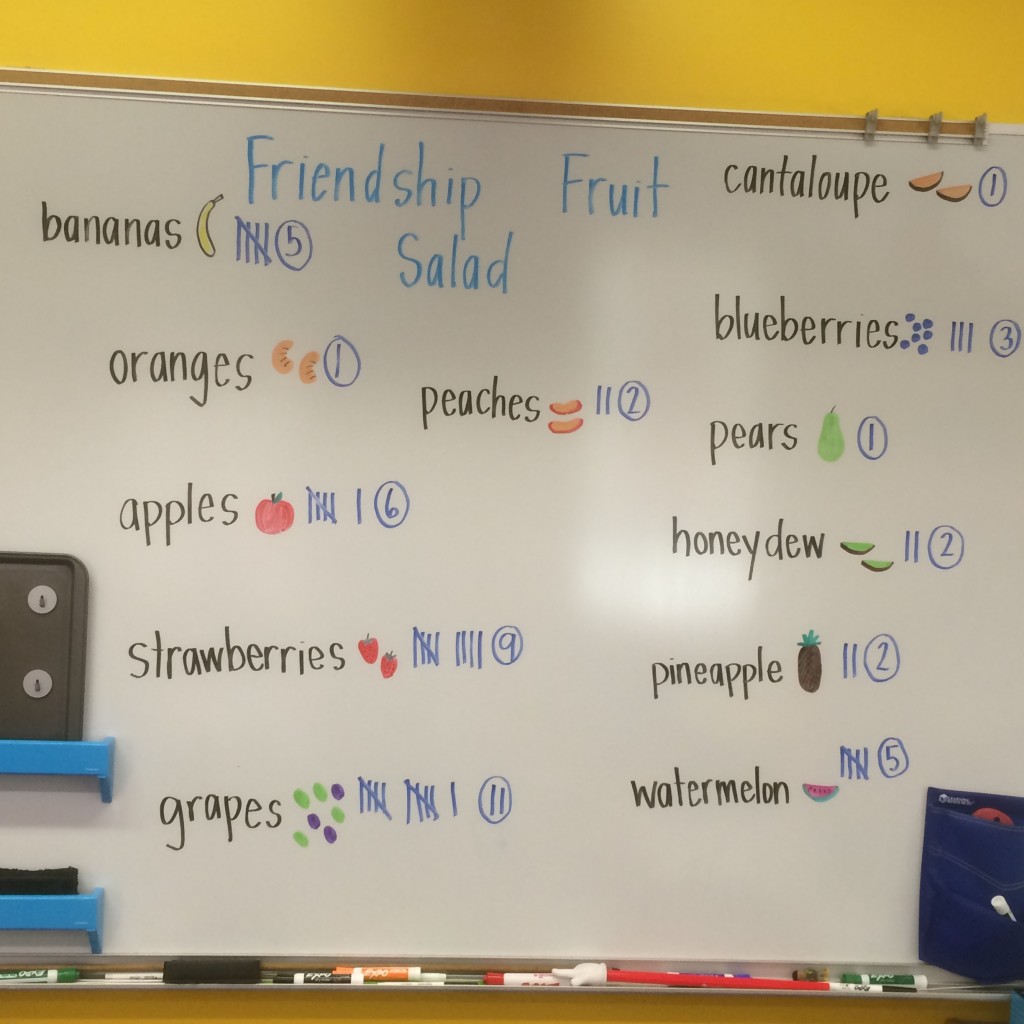 Friendship Fruit
Salad
bananas 5
oranges 1
apples 6
strawberries 9
grapes 11
peaches 2
cantaloupe 1
blueberries 3
pears 1
honeydew 2
pineapple 2
watermelon 5
EXPO